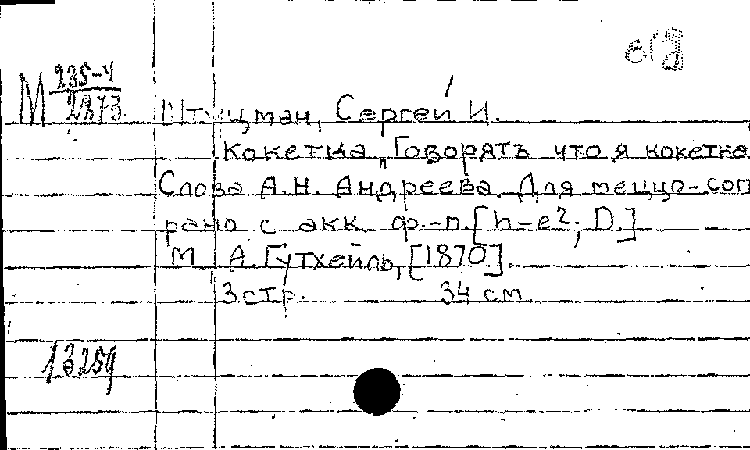 М 235-4
2873
Штуцман, Сергей И.
Кокетка „Говорятъ что я кокетка
Слова А.Н. Андреева. Для меццо-соп
рано с акк. ф.-п. [h-e2; D.]
М. А. Гутхейль, [1870].
3 стр. 34 см.
13259